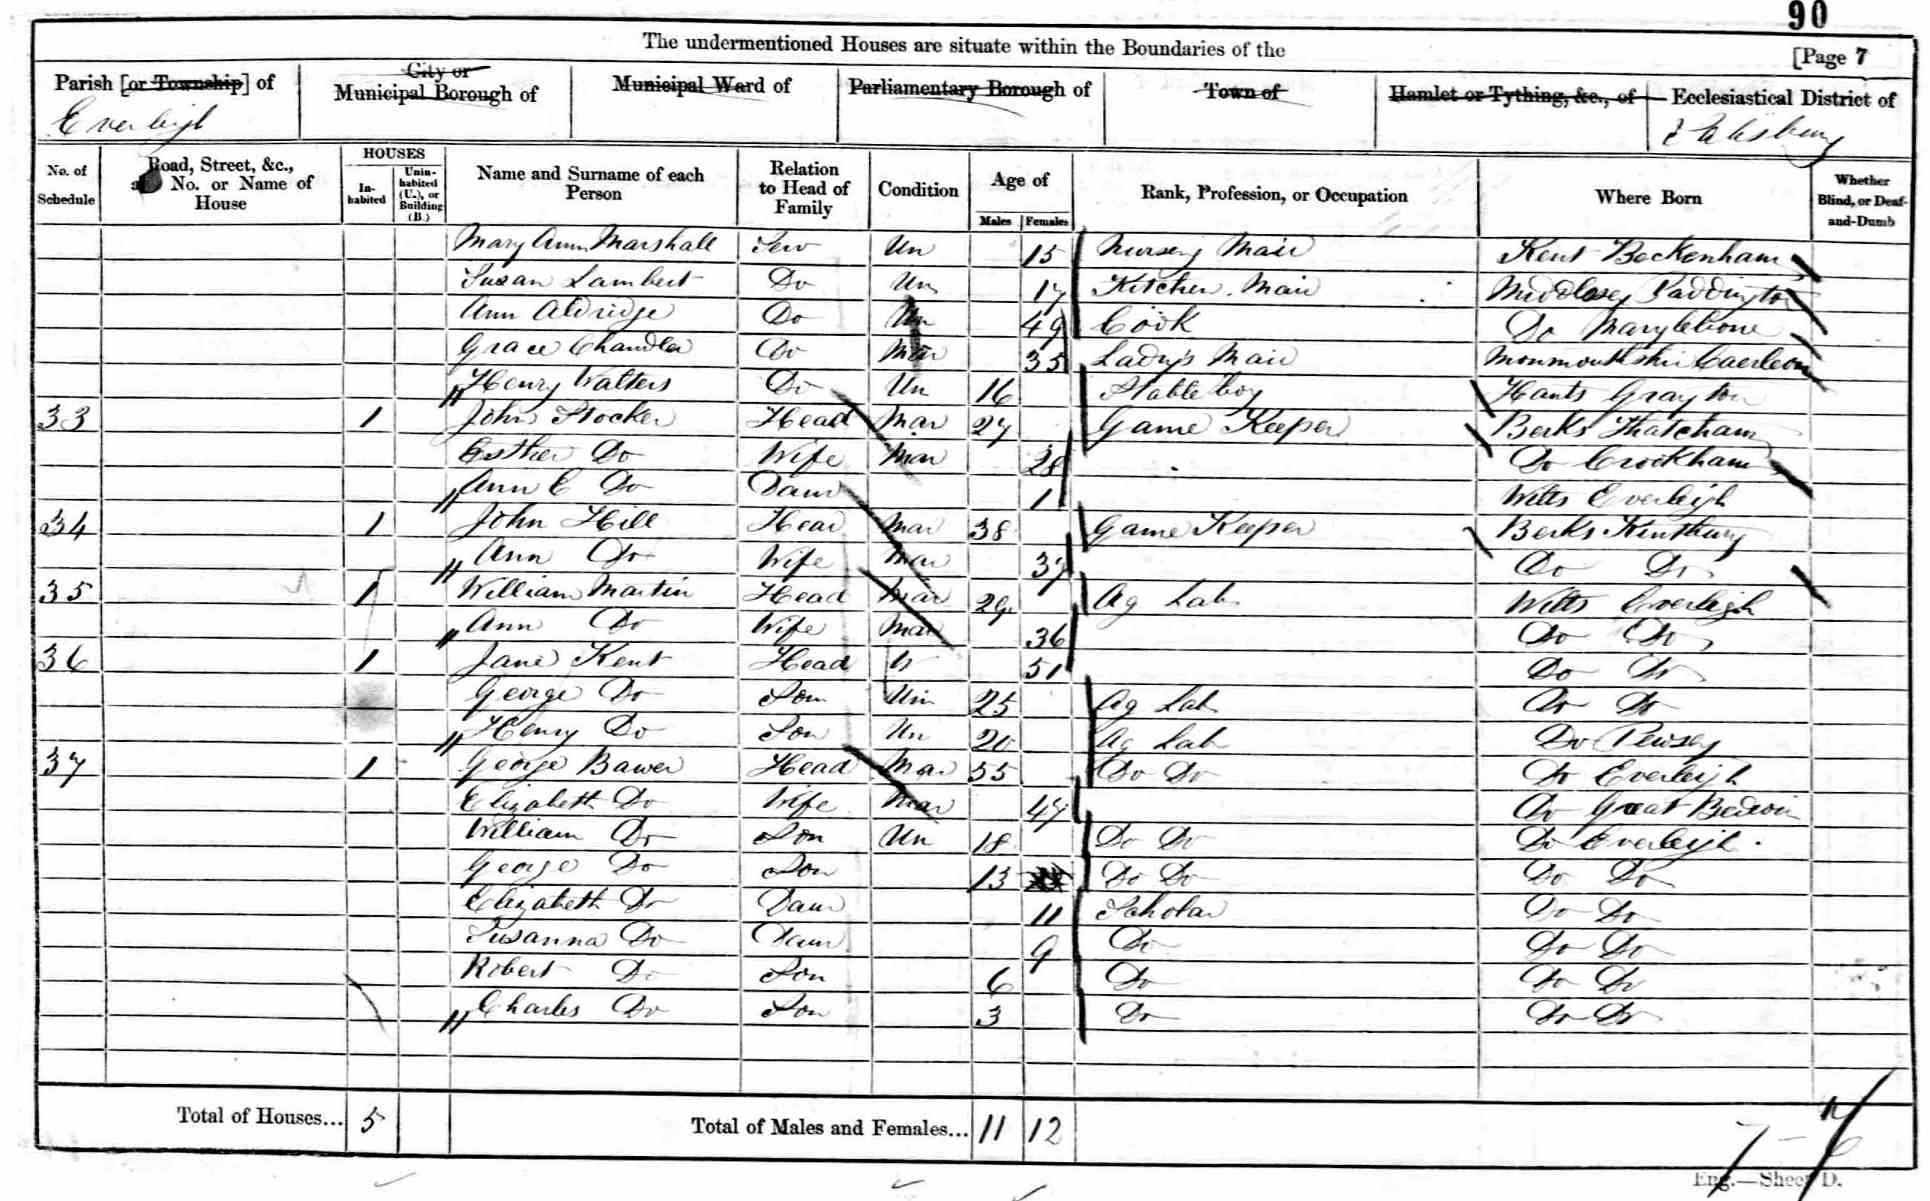 90
The undermentioned Houses are situate within the Boundaries of the
[Page 7
Parish [or Township] of
City or
Municipal Borough of
Municipal Ward of
Parliamentary Borough of
Town of
Hamlet or Tything, &c., of
Ecclesiastical District of
Everleigh
Salisbury
No. of
Schedule
Road, Street, &c.,
and No. or Name of
House
HOUSES
In-
habited
Unin-
habited
(U.), or
Building
(B.)
Name and Surname of each
Person
Relation
to Head of
Family
Condition
Age of
Males Females
Rank, Profession, or Occupation
Where Born
Whether
Blind, or Deaf-
and-Dumb
Mary Ann Marshall Serv Un 15 Nursery Maid Kent Beckenham
Susan Lambert Do Un 17 Kitchen Maid Middlesex Paddington
Ann Aldridge Do Un 49 Cook Do Marylebone
Grace Chandler Do Mar 35 Lady's Maid Monmouthshire Caerleon
Henry Walters Do Un 16 Stable boy Hants
33 1 John Stocker Head Mar 27 Game Keeper Berks Thatcham
Esther Do Wife Mar 28 Do Crookham
Ann E Do Daur 1 Wilts Everleigh
34 1 John Hill Head Mar 38 Game Keeper Berks Kintbury
Ann Do Wife Mar 37 Do Do
35 1 William Martin Head Mar 29 Ag Lab Wilts Everleigh
Ann Do Wife Mar 36 Do Do
36 1 Jane Kent Head W 51 Do Do
George Do Son Un 25 Ag Lab Do Do
Henry Do Son Un 20 Ag Lab Do Pewsey
37 1 George Bawer Head Mar 55 Do Do Do Everleigh
Elizabeth Do Wife Mar 47 Do Great Bedwin
William Do Son Un 18 Do Do Do Everleigh
George Do Son 13 Do Do Do Do
Elizabeth Do Daur 11 Scholar Do Do
Susanna Do Daur 9 Do Do Do
Robert Do Son 6 Do Do Do
Charles Do Son 3 Do Do Do
Total of Houses... 5
Total of Males and Females... 11 12
Eng.—Sheet D.